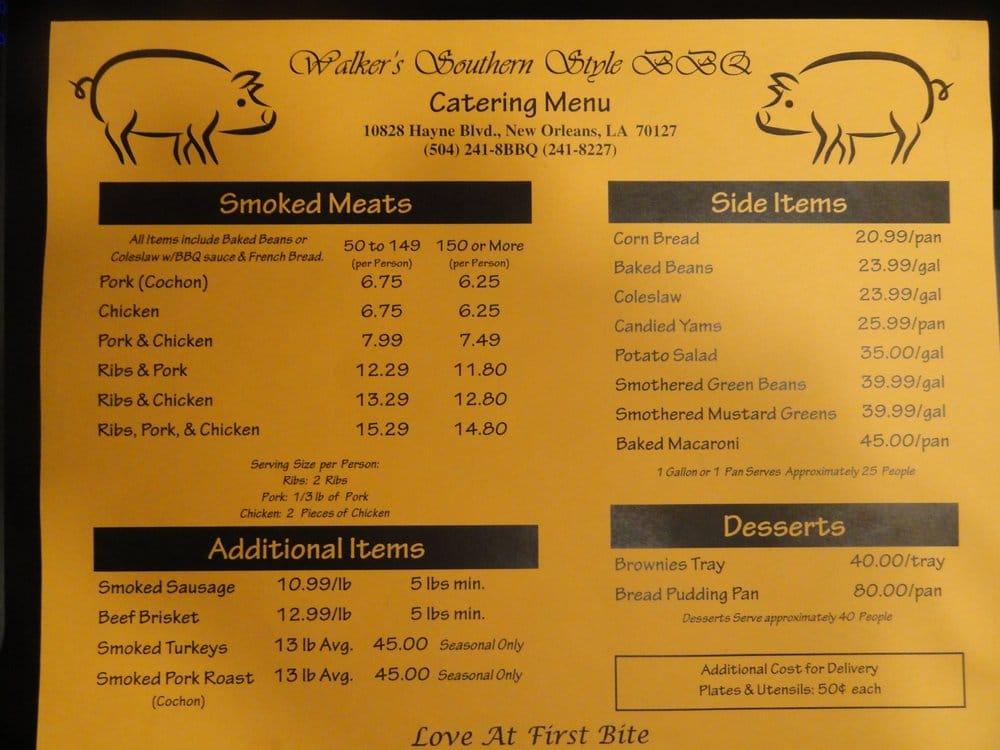 Walker's Southern Style BBQ
Catering Menu
10828 Hayne Blvd., New Orleans, LA 70127
(504) 241-8BBQ (241-8227)
Smoked Meats
All Items include Baked Beans or
Coleslaw w/BBQ sauce & French Bread.
50 to 149 150 or More
(per Person) (per Person)
Pork (Cochon) 6.75 6.25
Chicken 6.75 6.25
Pork & Chicken 7.99 7.49
Ribs & Pork 12.29 11.80
Ribs & Chicken 13.29 12.80
Ribs, Pork, & Chicken 15.29 14.80
Serving Size per Person:
Ribs: 2 Ribs
Pork: 1/3 lb of Pork
Chicken: 2 Pieces of Chicken
Additional Items
Smoked Sausage 10.99/lb 5 lbs min.
Beef Brisket 12.99/lb 5 lbs min.
Smoked Turkeys 13 lb Avg. 45.00 Seasonal Only
Smoked Pork Roast 13 lb Avg. 45.00 Seasonal Only
(Cochon)
Side Items
Corn Bread 20.99/pan
Baked Beans 23.99/gal
Coleslaw 23.99/gal
Candied Yams 25.99/pan
Potato Salad 35.00/gal
Smothered Green Beans 39.99/gal
Smothered Mustard Greens 39.99/gal
Baked Macaroni 45.00/pan
1 Gallon or 1 Pan Serves Approximately 25 People
Desserts
Brownies Tray 40.00/tray
Bread Pudding Pan 80.00/pan
Desserts Serve approximately 40 People
Additional Cost for Delivery
Plates & Utensils: 50¢ each
Love At First Bite